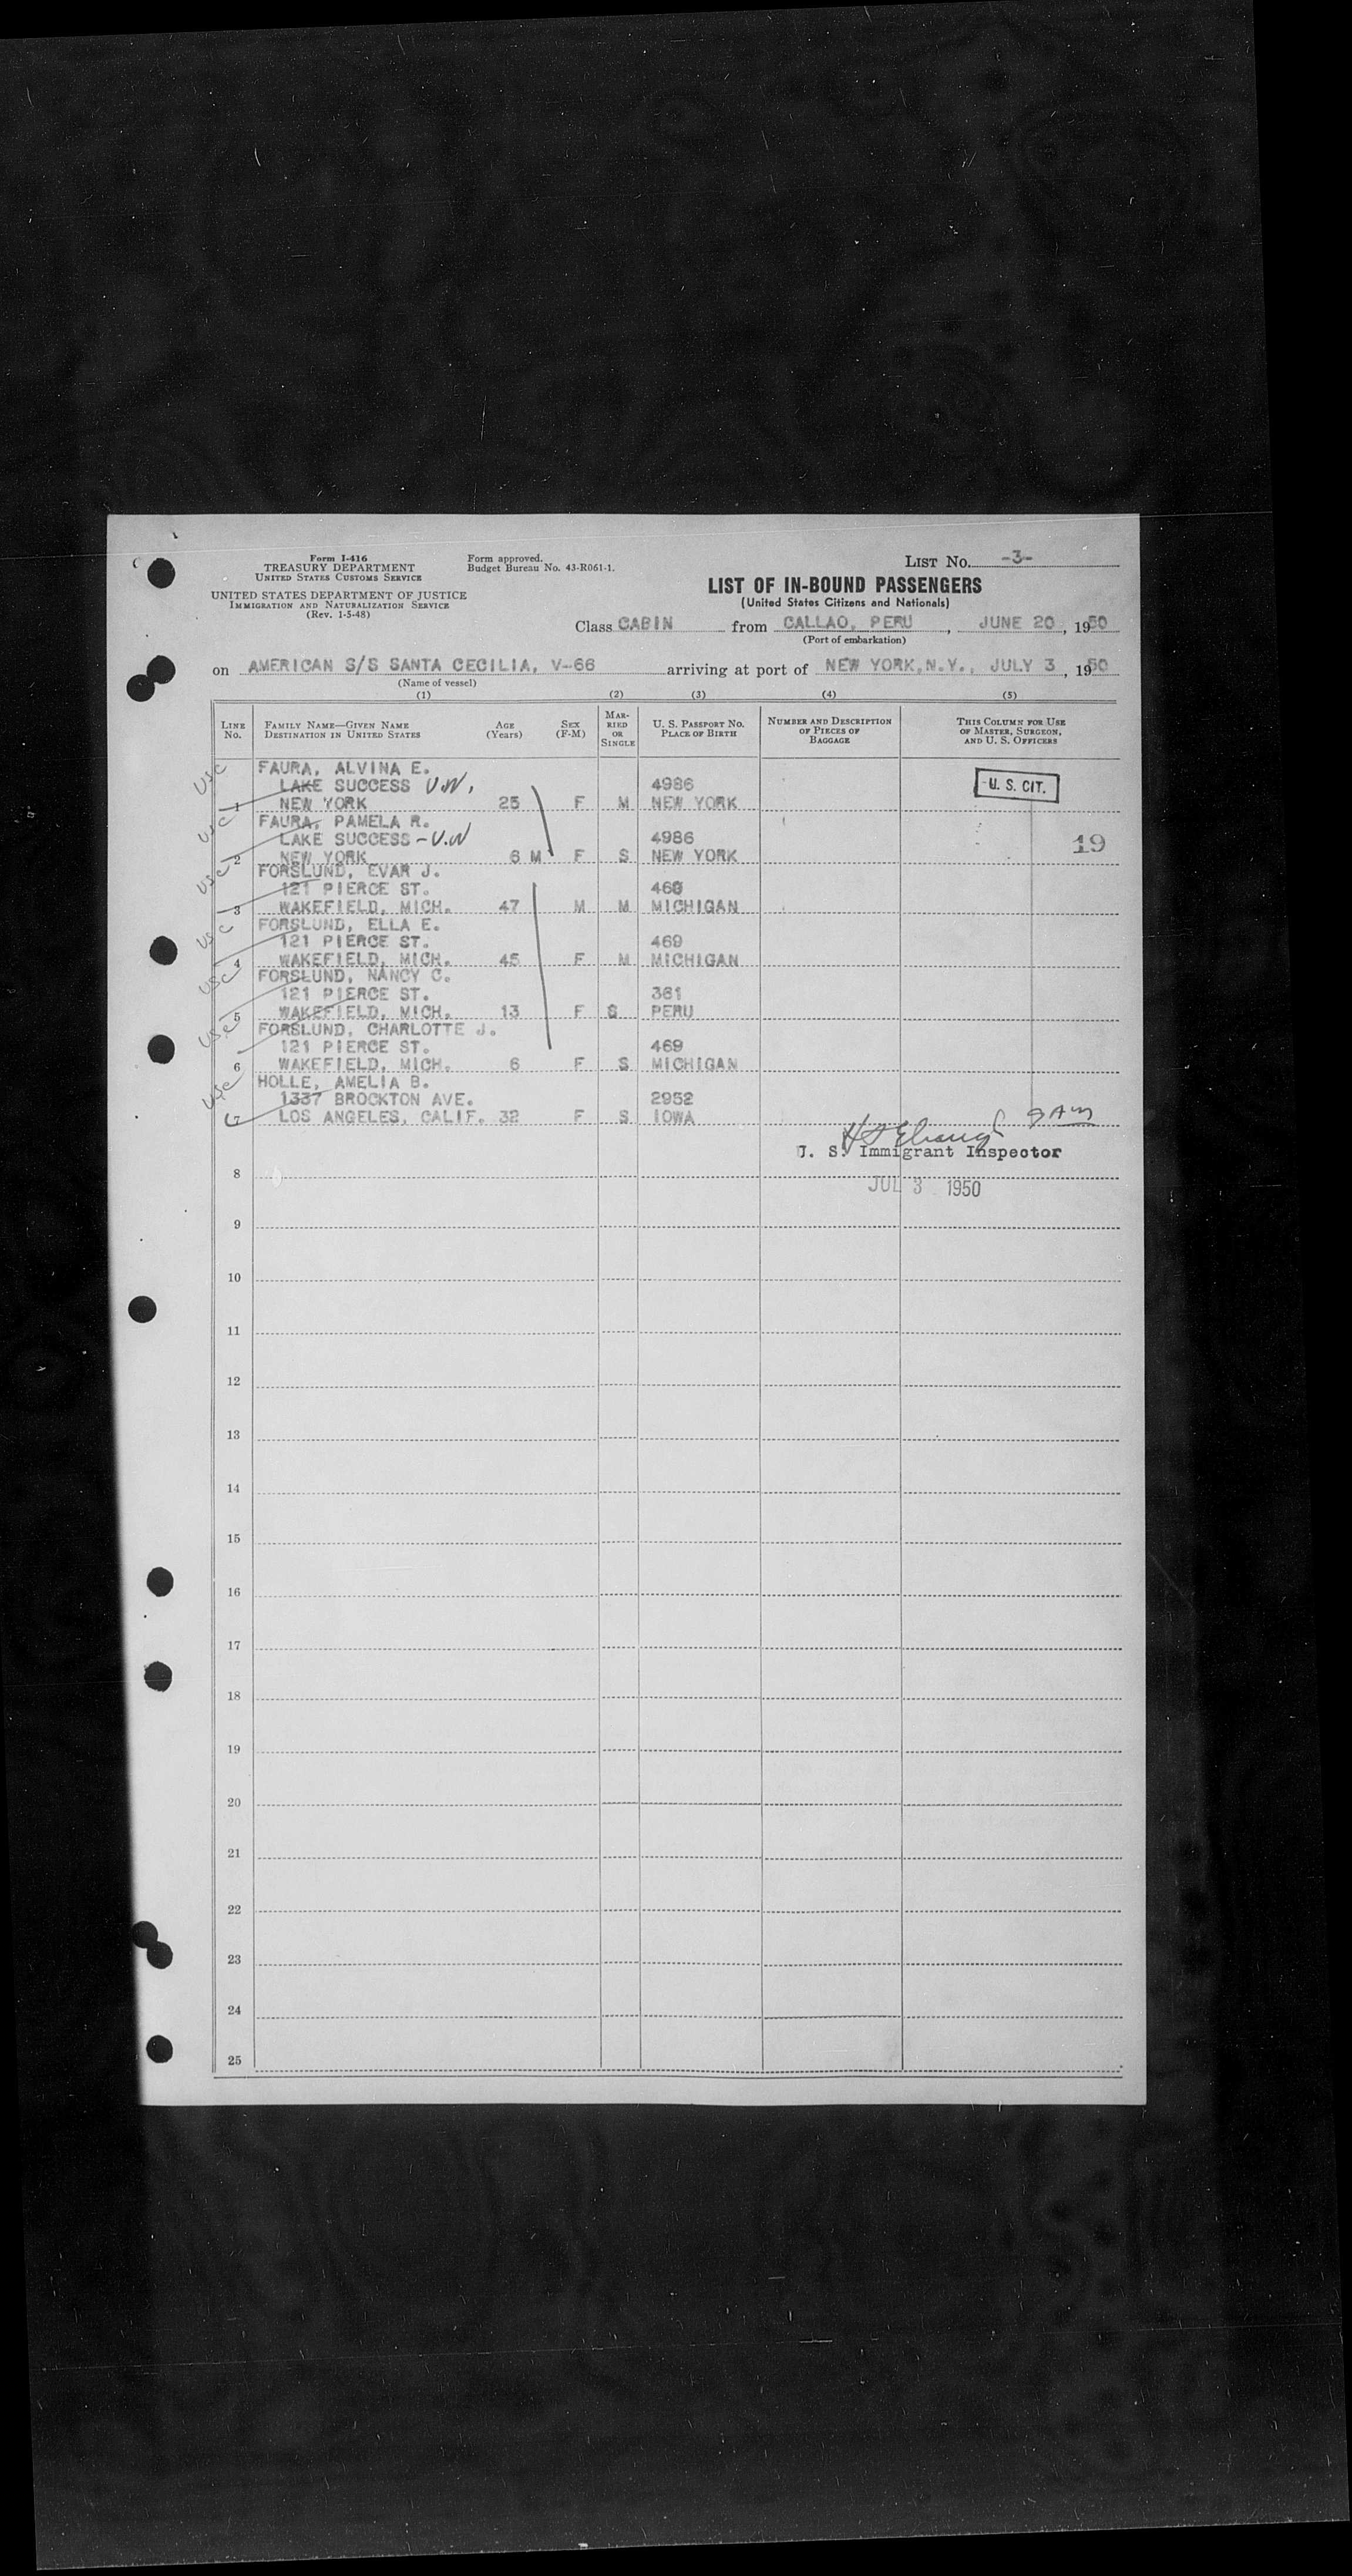 Form I-416
TREASURY DEPARTMENT
UNITED STATES CUSTOMS SERVICE
UNITED STATES DEPARTMENT OF JUSTICE
IMMIGRATION AND NATURALIZATION SERVICE
(Rev. 1-5-48)
Form approved.
Budget Bureau No. 43-R061-1.
LIST NO. -3-
LIST OF IN-BOUND PASSENGERS
(United States Citizens and Nationals)
Class CABIN from CALLAO, PERU, JUNE 20, 1950
(Port of embarkation)
on AMERICAN S/S SANTA CECILIA, V-66 arriving at port of NEW YORK, N.Y., JULY 3, 1950
(Name of vessel)
(1) (2) (3) (4) (5)
LINE NO. FAMILY NAME—GIVEN NAME DESTINATION IN UNITED STATES AGE (Years) SEX (F-M) MARRIED OR SINGLE U. S. PASSPORT NO. PLACE OF BIRTH NUMBER AND DESCRIPTION OF PIECES OF BAGGAGE THIS COLUMN FOR USE OF MASTER, SURGEON, AND U. S. OFFICERS
USC FAURA, ALVINA E.
LAKE SUCCESS U.N. 4986 U. S. CIT.
1 NEW YORK 25 F M NEW YORK
USC FAURA, PAMELA R.
LAKE SUCCESS - U.N 4986 19
2 NEW YORK 6 M F S NEW YORK
USC FORSLUND, EVAR J.
121 PIERCE ST. 469
3 WAKEFIELD, MICH. 47 M M MICHIGAN
USC FORSLUND, ELLA E.
121 PIERCE ST. 469
4 WAKEFIELD, MICH. 45 F M MICHIGAN
USC FORSLUND, NANCY C.
121 PIERCE ST. 361
5 WAKEFIELD, MICH. 13 F S PERU
USC FORSLUND, CHARLOTTE J.
121 PIERCE ST. 469
6 WAKEFIELD, MICH. 6 F S MICHIGAN
USC HOLLE, AMELIA B.
1337 BROCKTON AVE. 2952
LOS ANGELES, CALIF. 32 F S IOWA
U. S. Immigrant Inspector
8 JUL 3 1950
9
10
11
12
13
14
15
16
17
18
19
20
21
22
23
24
25